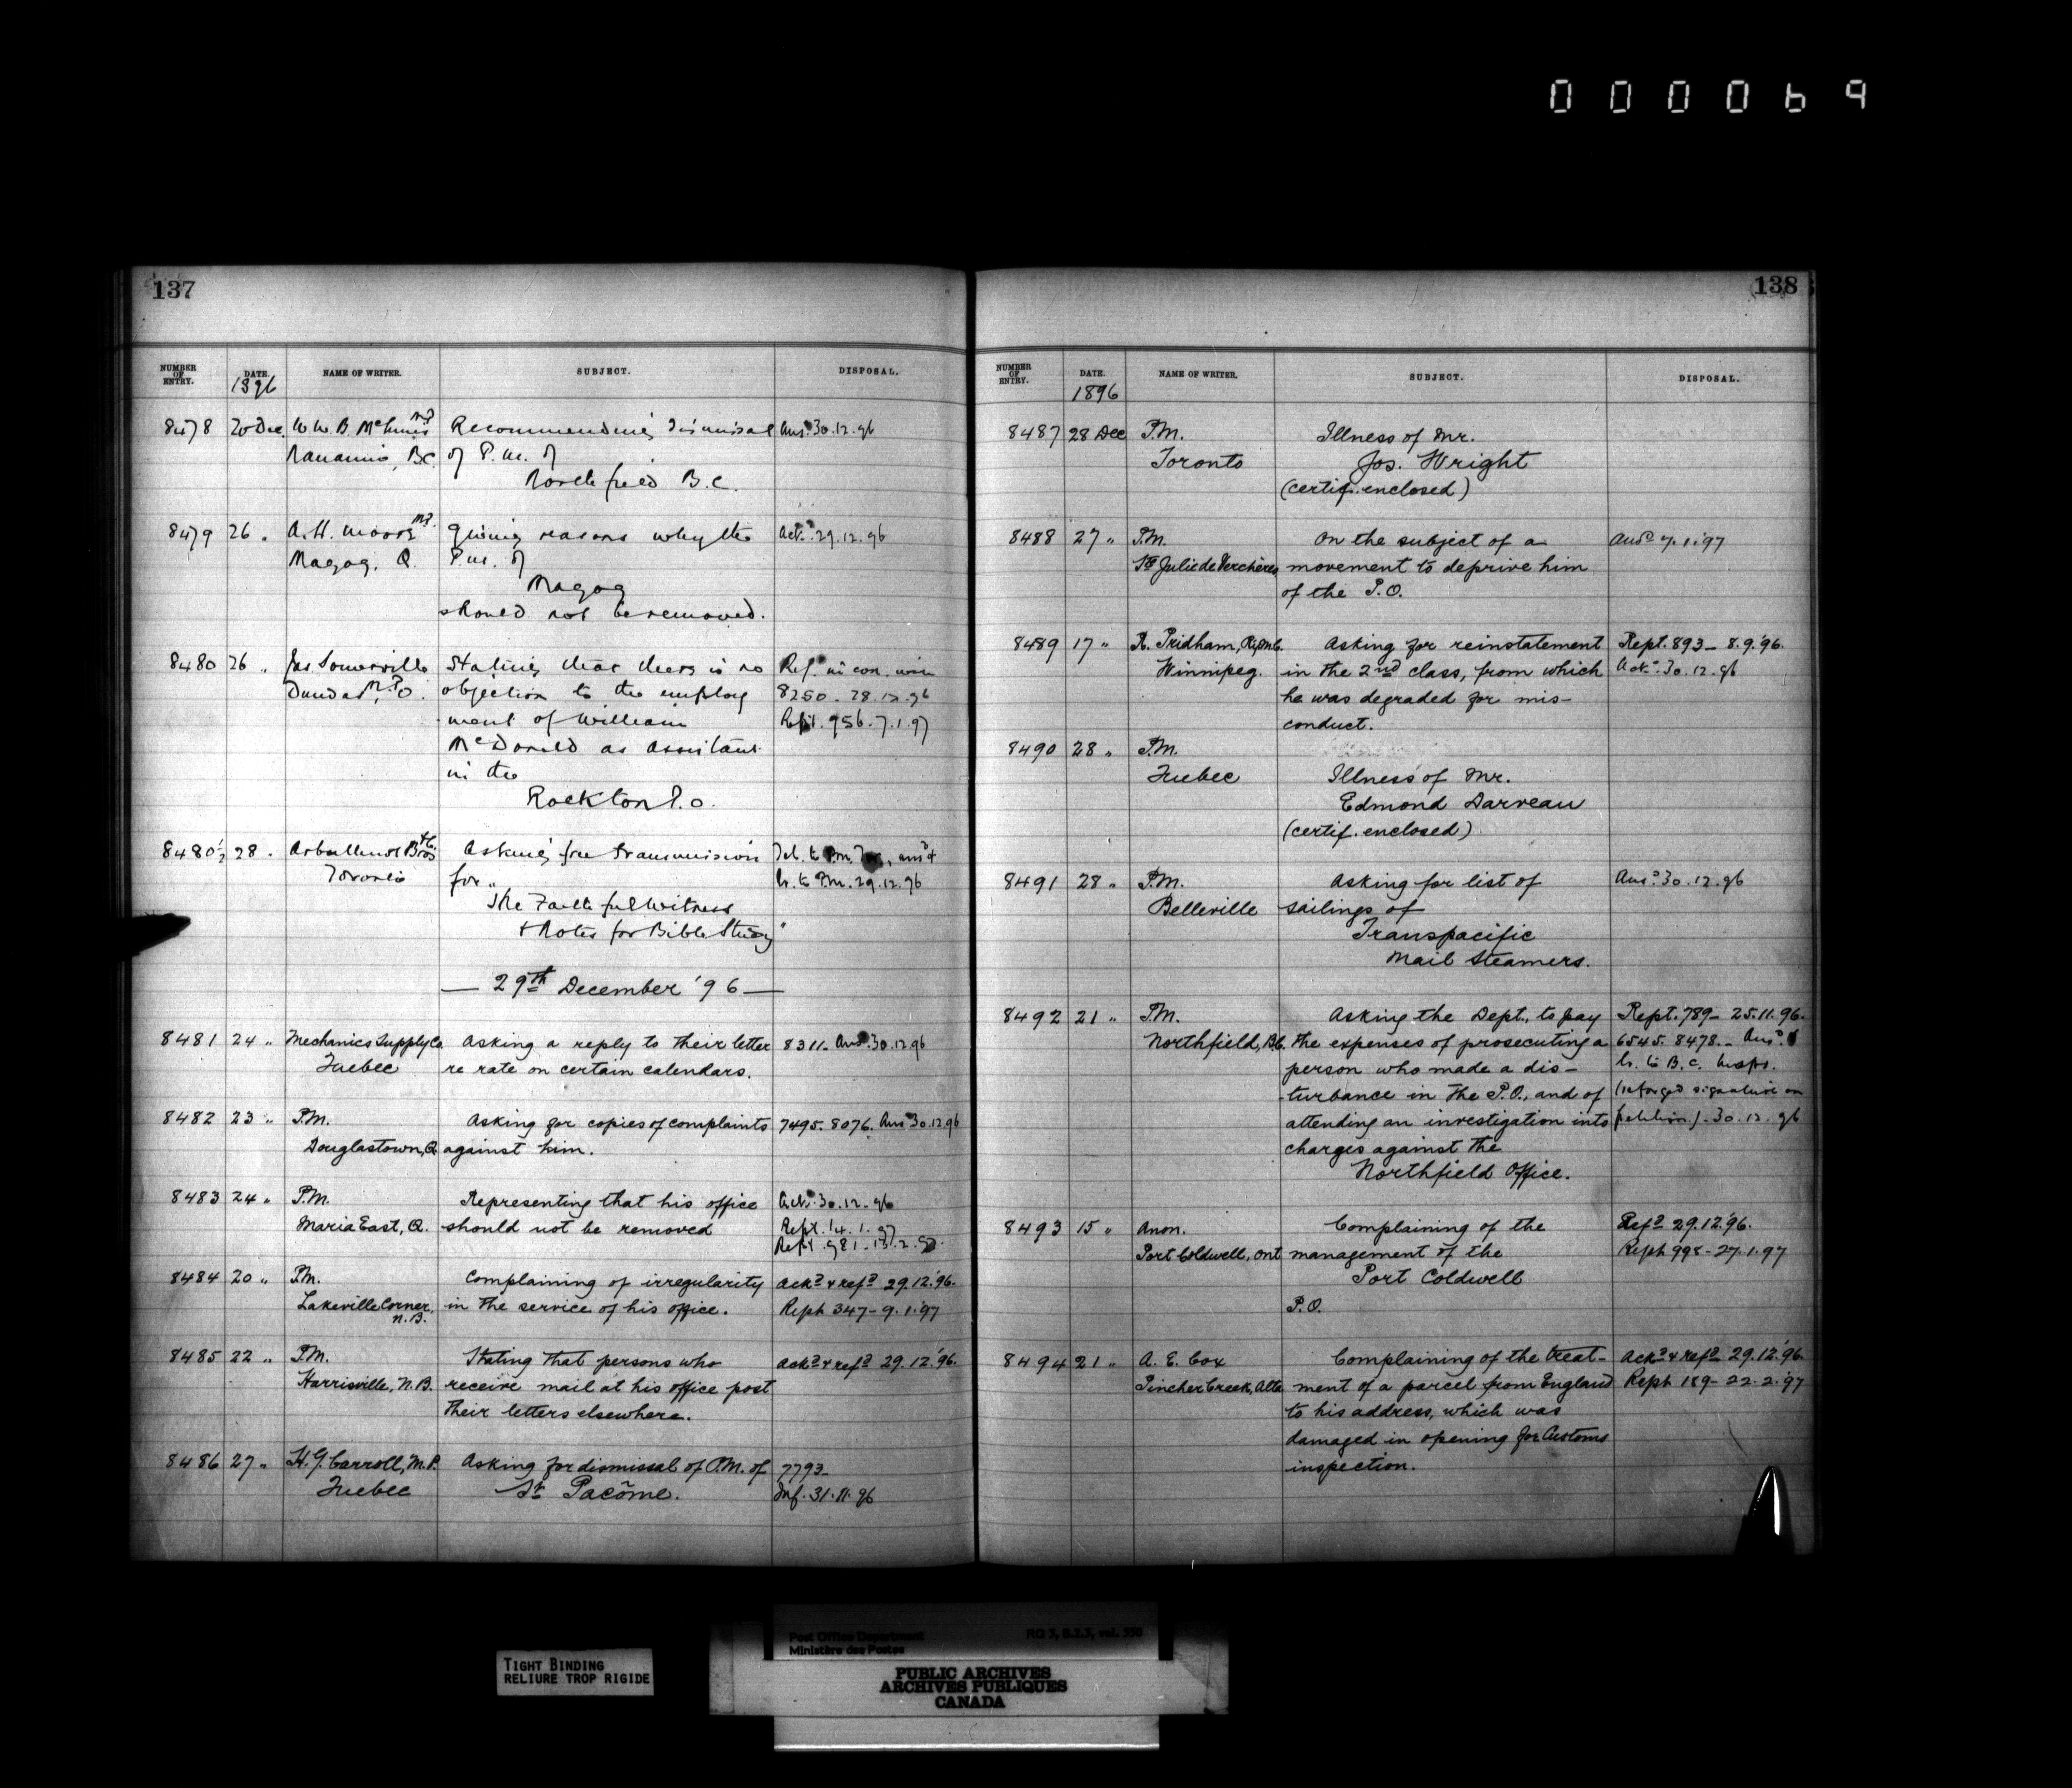 000069
137
NUMBER OF ENTRY. DATE. NAME OF WRITER. SUBJECT. DISPOSAL.
1896
8478 20 Dec. W. W. B. McInnes M.P. Recommending dismissal Ansd. 30.12.96
Nanaimo, B.C. of P.M. of
Northfield B.C.
8479 26 " A. H. Moore M.P. Giving reasons why the Ackd. 29.12.96
Magog, Q. P.M. of
Magog
should not be removed.
8480 26 " Jas Somerville Stating that there is no Ref. in con. with
Dundas, M.P. O. objection to the employ 8250 - 28.12.96
-ment of William Rept. 956 - 7.1.97
McDonald as assistant
in the
Rockton P.O.
8480½ 28 " Arbuthnot Bros & Co. Asking free transmission Tel. to P.M. Tor., ansd &
Toronto for " lr. to P.M. 29.12.96
The Faithful Witness
& Notes for Bible Study"
— 29th December '96 —
8481 24 " Mechanics Supply Co. Asking a reply to their letter 8311. Ansd. 30.12.96
Quebec re rate on certain calendars.
8482 23 " P.M. Asking for copies of complaints 7495. 8076. Ansd 30.12.96
Douglastown, Q against him.
8483 24 " P.M. Representing that his office Ackd. 30.12.96
Maria East, Q. should not be removed Rept. 14.1.97
Rept. 981 - 13.2.97.
8484 20 " P.M. Complaining of irregularity Ackd & refd 29.12.'96.
Lakeville Corner, in the service of his office. Reph 347 - 9.1.'97
N.B.
8485 22 " P.M. Stating that persons who Ackd & refd 29.12.'96.
Harrisville, N.B. receive mail at his office post
their letters elsewhere.
8486 27 " H. G. Carroll, M.P. Asking for dismissal of P.M. of 7793-
Quebec St. Pacôme. Inf. 31.11.96
138
NUMBER OF ENTRY. DATE. NAME OF WRITER. SUBJECT. DISPOSAL.
1896
8487 28 Dec P.M. Illness of Mr.
Toronto Jos. Wright
(certif. enclosed)
8488 27 " P.M. On the subject of a Ansd 7.1.'97
Ste Julie de Verchères movement to deprive him
of the P.O.
8489 17 " R. Pridham, Ry. M. C. Asking for reinstatement Rept. 893 - 8.9.'96.
Winnipeg. in the 2nd class, from which Ackd. 30.12.96
he was degraded for mis-
conduct.
8490 28 " P.M.
Quebec Illness of Mr.
Edmond Darveau
(certif. enclosed)
8491 28 " P.M. Asking for list of Ansd. 30.12.96
Belleville sailings of
Transpacific
Mail Steamers.
8492 21 " P.M. Asking the Dept., to pay Rept. 789 - 25.11.96.
Northfield, B.C. the expenses of prosecuting a 6545. 8478. - Ansd. &
person who made a dis- lr. to B.C. Inspr.
-turbance in the P.O., and of (re forged signature on
attending an investigation into petition). 30.12.96
charges against the
Northfield Office.
8493 15 " Anon. Complaining of the Refd 29.12.'96.
Port Coldwell, Ont management of the Reph 998 - 27.1.97
Port Coldwell
P.O.
8494 21 " A. E. Cox Complaining of the treat- Ackd & refd 29.12.'96.
Pincher Creek, Alta ment of a parcel from England Reph 189 - 22.2.'97
to his address, which was
damaged in opening for Customs
inspection.
Post Office Department RG 3, B.2.3, vol. 338
Ministère des Postes
TIGHT BINDING
RELIURE TROP RIGIDE
PUBLIC ARCHIVES
ARCHIVES PUBLIQUES
CANADA